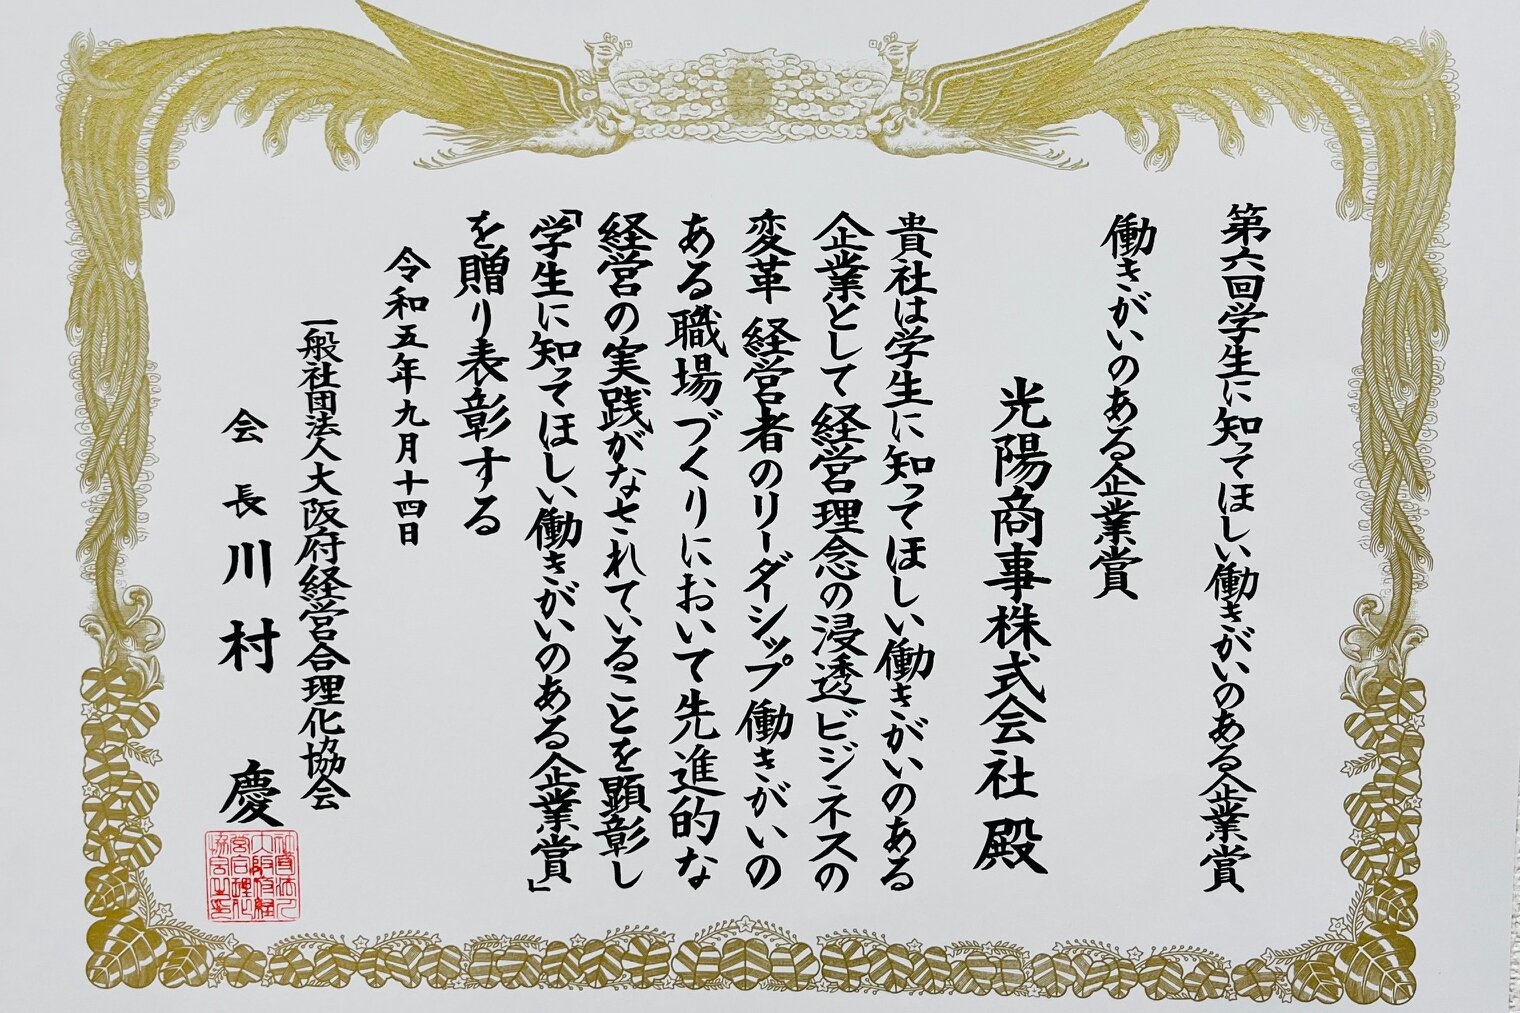 第六回学生に知ってほしい働きがいのある企業賞
働きがいのある企業賞
光陽商事株式会社 殿
貴社は学生に知ってほしい働きがいのある
企業として経営理念の浸透ビジネスの
変革 経営者のリーダーシップ 働きがいの
ある職場づくりにおいて先進的な
経営の実践がなされていることを顕彰し
「学生に知ってほしい働きがいのある企業賞」
を贈り表彰する
令和五年九月十四日
一般社団法人大阪府経営合理化協会
会長 川村 慶